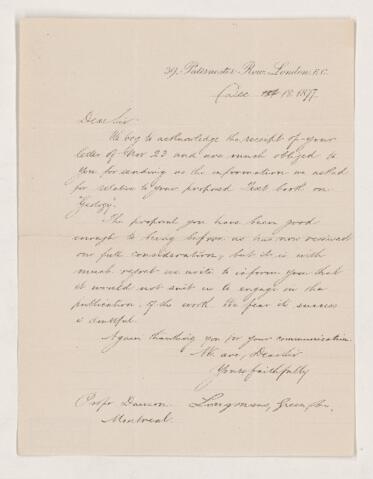 39, Paternoster Row, London, E.C.
Dec 18. 1877
Dear Sir
We beg to acknowledge the receipt of your
letter of Nov 23 and are much obliged to
you for sending us the information we asked
for relative to your proposed Text book on
"Geology".
The proposal you have been good
enough to bring before us has now received
our full consideration, but it is with
much regret we write to inform you that
it would not suit us to engage in the
publication of the work. We fear its success
is doubtful.
Again thanking you for your communication.
We are, Dear Sir
Yours faithfully
Longmans, Green,
Profr Dawson
Montreal.